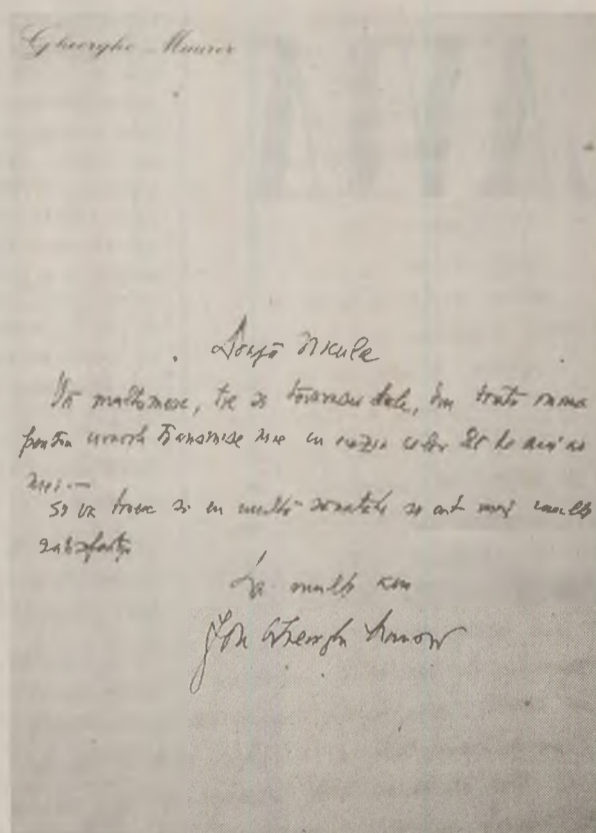 Gheorghe Maurer
Dragă Nicule
Vă mulțumesc, ție și tovarășei tale, din toată inima
pentru urările transmise mie cu ocazia celor 85 de ani ai
mei.—
Să vă trăiesc și eu multă sănătate și cât mai multe
satisfacții
La mulți ani
Ion Gheorghe Maurer